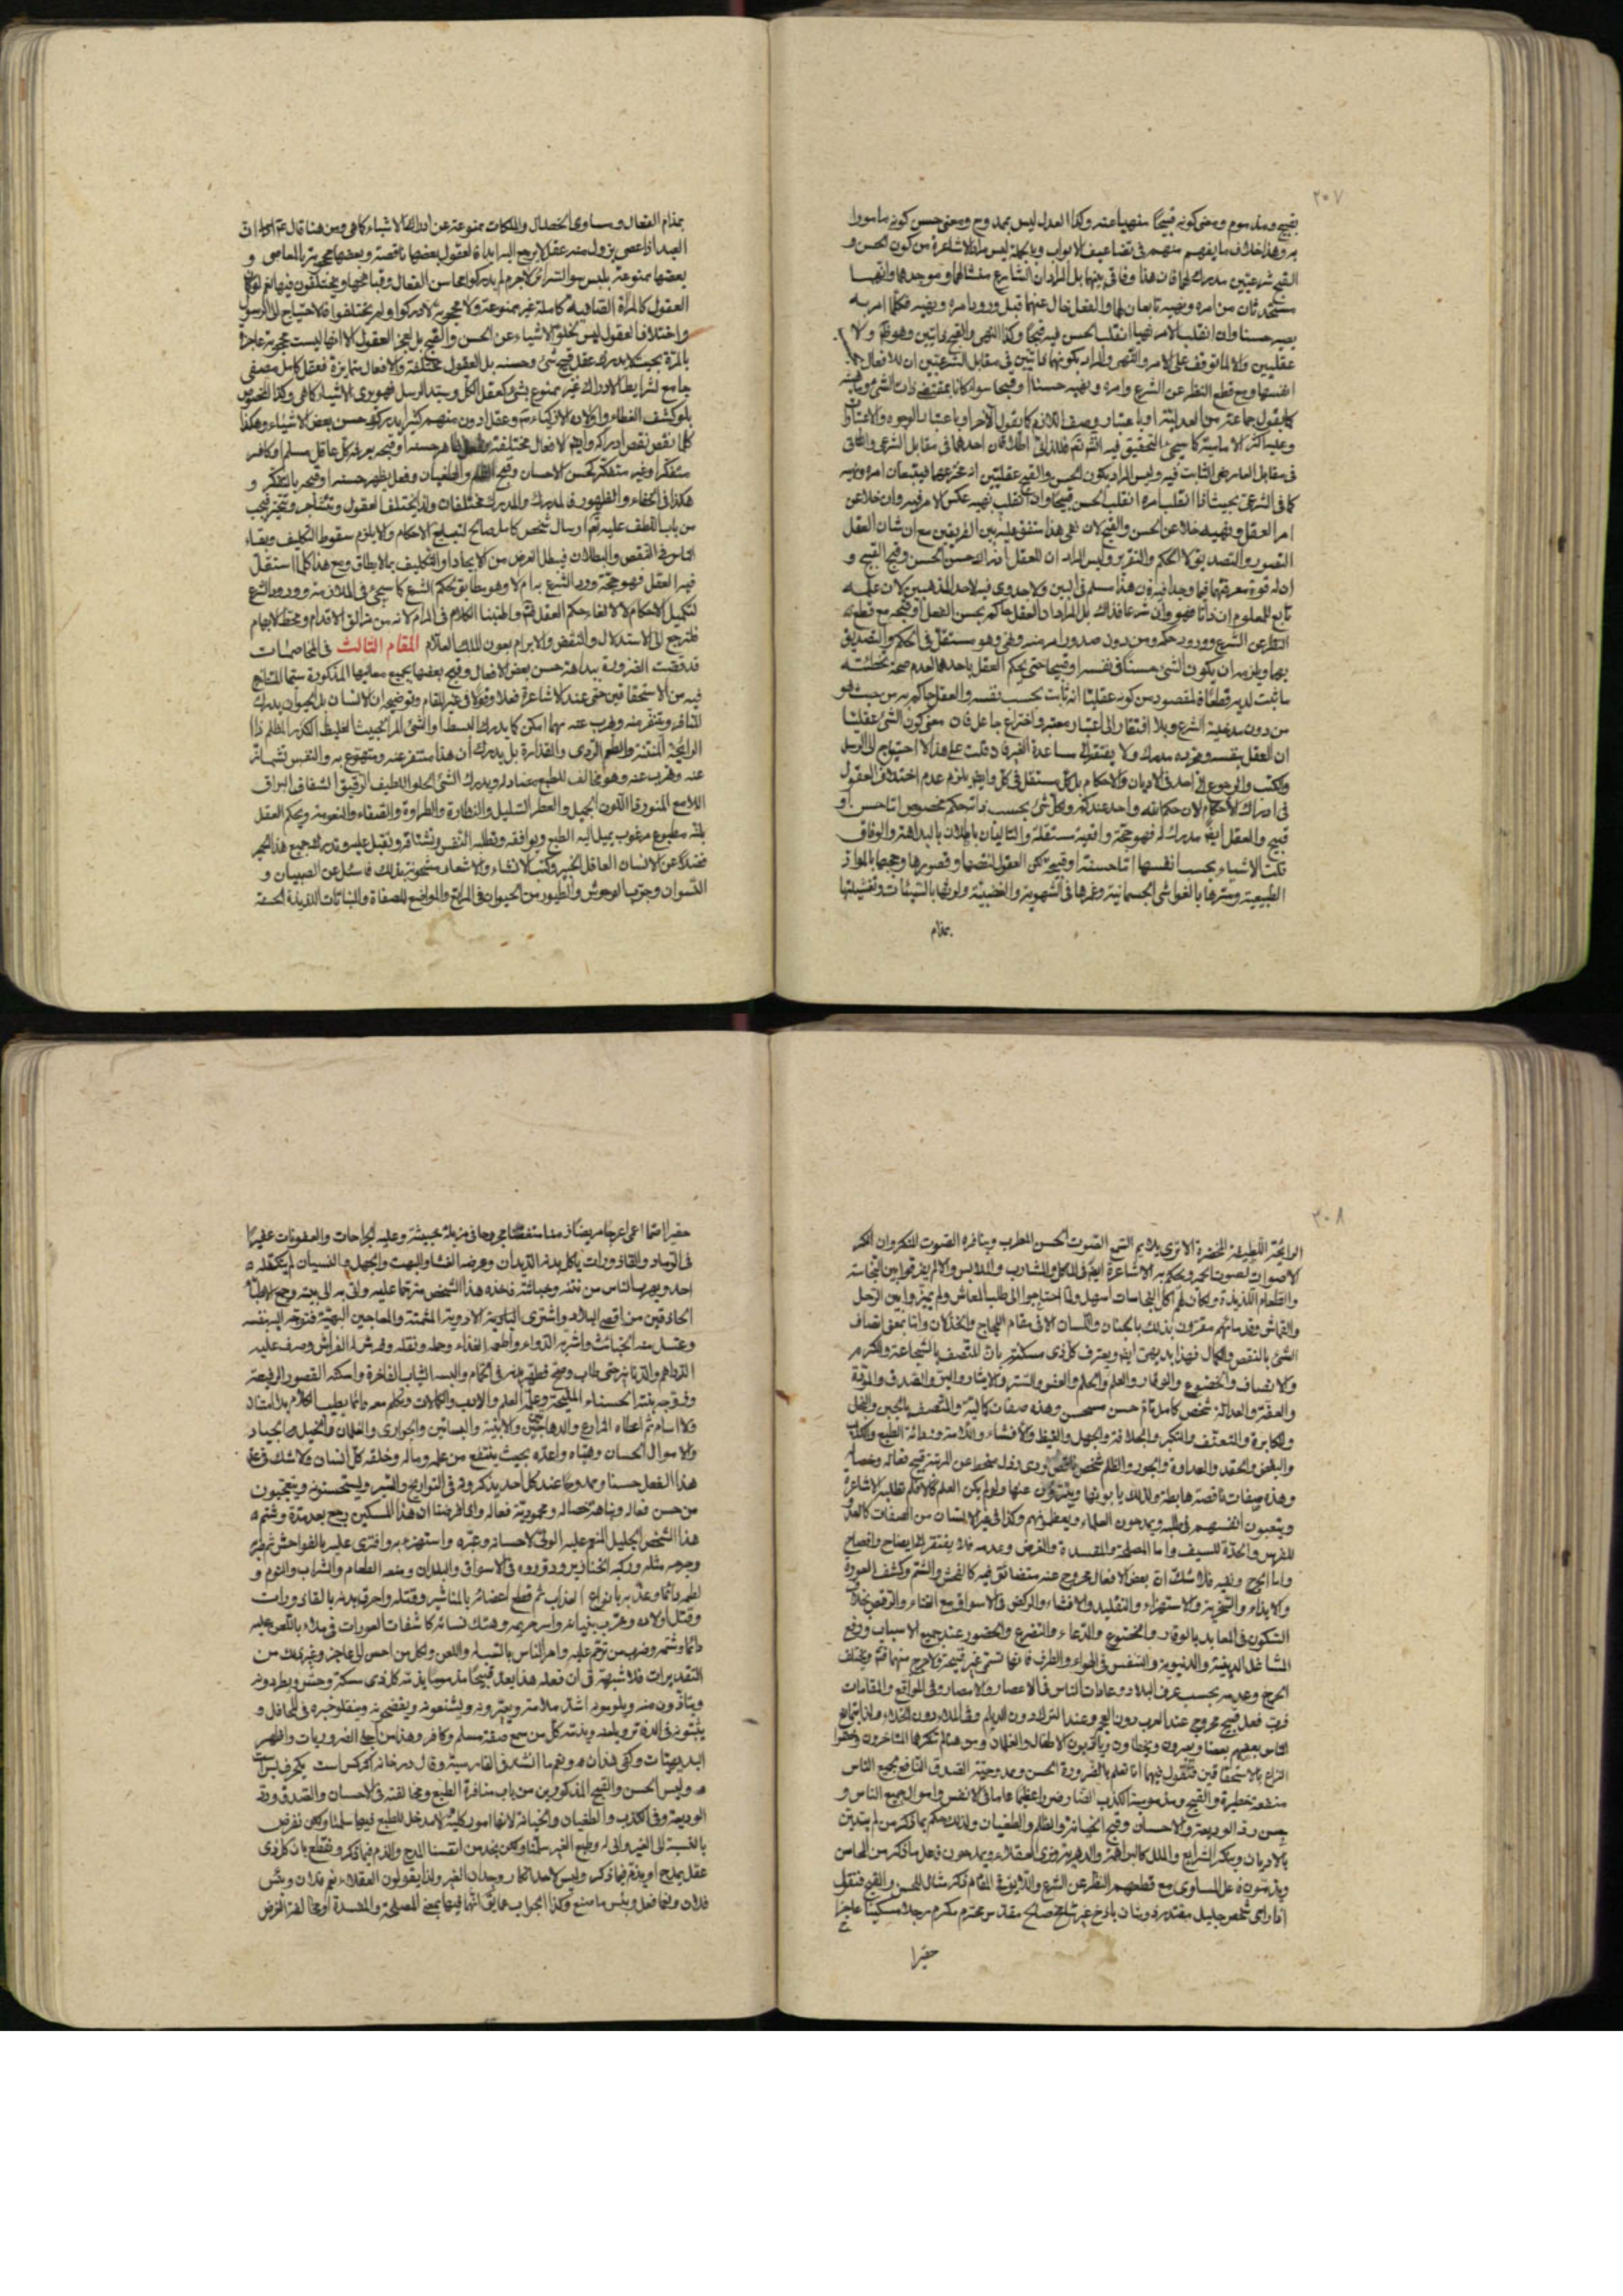 ٢٠٧
بقبيح ومذموم ومعنى كونه قبيحًا منهيا عنه وكذا العدل ليس بممدوح ومعنى حسن كونه مامورا
به وهذا خلاف ما يفهم منهم في تضاعيف الابواب وبالجملة ليس مراد الاشاعرة من كون الحسن و
القبح شرعيتين مدرك لهما فان هذا وفاقي بينهما بل المراد ان الشارع منشالهما وموجدهما وانهما
مستحدثان من امره ونهيه تابعان لهما والفعل خال عنهما قبل ورود امره ونهيه فكلما امر به
يصير حسنا وان انقلب الامر نهيا انقلب الحسن فيه قبحًا وكذا النهي والقبح
عقليين والا لما توقف على الامر والنهي والمراد بكونهما ذاتيين في مقابل الشرعيتين ان للافعال
انفسها ومع قطع النظر عن الشرع وامره ونهيه حسنا او قبحا سواء كانا بمقتضى ذات الشئ
كما يقول جماعة من العدلية او باعتبار وصف اللازم كما يقول الاخر او باعتبار الوجوه والاعتبارات
وعليه اكثر الامامية كما سيجئ التحقيق فيه
في مقابل العارضي الثابت فيه وليس المراد بكون الحسن والقبح عقليتين انه مخترعهما فيتبعان امره ونهيه
كما في الشرعي بحيث اذا انقلب امره انقلب الحسن قبيحًا وان انقلب نهيه عكس الامر فيه وان خلا عن
امر العقل ونهيه خلا عن الحسن والقبح لان نفي هذا متفق عليه بين الفريقين مع ان شان العقل
التصور والتصديق لا الحكم والتقرير وليس المراد ان للعقل ادراك حسن الحسن وقبح القبيح و
ان له قوة معرفتهما فيما وجدا فيه فان هذا مسلم في البين ولا جدوى فيه لاحد المذهبين لان علمه
تابع للمعلوم ان ذاتا فهو وان شرعا فذاك بل المراد ان العقل حاكم بحسن الفعل او قبحه مع قطع
النظر عن الشرع وورود حكمه ومن دون صدور امر منه ونهي وهو مستقل في الحكم والتصديق
بهما ويلزمه ان يكون الشئ حسنا في نفسه او قبيحا حتى يحكم العقل باحدهما لعدم صحة تخطئته
ما ثبت لديه قطعًا فالمقصود من كونه عقليًا انه ثابت بحسب نفسه والعقل حاكم به من حيث هو
من دون مدخلية الشرع وبلا افتقار الى اعتبار معتبر واختراع جاعل فان معنى كون الشئ عقليا
ان العقل بنفسه وبمجرده مدرك ولا يفتقر الى مساعدة الغير فان قلت على هذا لا احتياج الى الرسل
والكتب والرجوع الى احد في الاديان والاحكام بل كل مستقل في كل وايضا يلزم عدم اختلاف العقول
في ادراك الاحكام لان حكم الله واحد عندكم وكل شئ بحسب ذاته محكم مخصوص اما حسن او
قبيح والعقل ايضا مدرك له فهو حجة واقعية مستقلة والتاليان باطلان بالبداهة والوفاق
قلت الاشياء بحسب انفسها اما حسنة او قبيحة لكن العقول لنقصها وقصورها وحجبها بالمواد
الطبيعية وسترها بالغواشي الجسمانية وغمرها في الشهوية والغضبية ولوثها بالسيئات وتغشيتها
بمذام
بمذام الفعال ومساوى الخصال والملكات ممنوعة عن ادراك الاشياء كما هي ومن هنا قال
العبد اذا عصى يزول منه عقل لا يرجع اليه ابدا فالعقول بعضها ناقصة وبعضها محجوبة بالمعاصي و
بعضها ممنوعة بلبس سوء السرائر لا جرم لم يدركوا محاسن الفعال وقبائحها ويختلفون فيها نعم لو كان
العقول كالمرآة الصافية كاملة غير ممنوعة ولا محجوبة لادركوا ولم يختلفوا فلا احتياج الى الرسول
واختلاف العقول ليس لخلو الاشياء عن الحسن والقبح بل لعجز العقول الا انها ليست محجوبة عاجزة
بالمرة بحيث لا يدرك عقل قبح شئ وحسنه بل العقول مختلفة والافعال متمايزة فعقل كامل مصفى
جامع لشرايط الادراك غير ممنوع بشئ كعقل الكل وسيد الرسل فهو يرى الاشياء كما هي
بلو كشف الغطاء وعقل ادون منهم كثيرا يدرك حسن بعض الاشياء وهكذا
كلما نقص نقص ادراكه وايضا الافعال مختلفة ظاهر حسنه او قبحه يعرفه كل عاقل مسلم او كافر
متفكرا وغير متفكر كحسن الاحسان وقبح الظلم والطغيان وفعل يظهر حسنه او قبحه بالتفكر و
هكذا في الخفاء والظهور فالمدرك والمدرك مختلفان ولذا يختلف العقول وتتشاجر وتتحير فيجب
من باب اللطف عليه تعالى ارسال شخص كامل صالح لتبليغ الاحكام والا يلزم سقوط التكليف وبقاء
الناس في النقص والبطلان فيبطل الغرض من الايجاد او التكليف بما لا يطاق ومع هذا كلما استقل
فيه العقل فهو حجة ورد الشرع به ام لا وهو مطابق بحكم الشرع كما سيجئ في الملازمة وورود الشرع
لتكميل الاحكام لا لالغاء حكم العقل وأطنبنا الكلام في المرام لانه من مزالق الاقدام ومحط الاوهام
فلنرجع الى الاستدلال والنقض والابرام بعون الملك العلام المقام الثالث في المخاصمات
قد قضت الضرورة ببداهة حسن بعض الافعال وقبح بعضها بجميع معانيها المذكورة سيما المتنازع
فيه من الاستحقاقين حتى عند الاشاعرة فعلا وقولا في غير المقام وتوضيحه ان الانسان بل الحيوان يدرك
المنافر ويتنفر منه ويهرب عنه مهما امكن كما يدرك البسطاء والشئ المر الخبيث الغليظ الكدر المظلم ذا
الرايحة المنتنة والطعم الردى والقذارة بل يدرك ان هذا متنفر عنه ومتهوع به والنفس تشمئز
عنه وتهرب عنه وهو مخالف للطبع مضاد له ويدرك الشئ الحلو اللطيف الرقيق الشفاف البراق
اللامع المنور ذا اللون الجميل والعطر السليل والنظارة والطراوة والصفاء والنعومة ويحكم العقل
بانه مطبوع مرغوب يميل اليه الطبع ويوافقه وتطلبه النفس وتشتاقه وتقبل عليه وقد يدرك جميع هذا الحمير
فضلا عن الانسان العاقل الخبير وكتب الانشاء والاشعار مشحونة بذلك فاسئل عن الصبيان و
النسوان وجرب الوحوش والطيور من الحيوان في المراتع والمواضع المصفاة والنباتات اللذيذة الحسنة
٢٠٨
الرايحة اللطيفة المخضرة الا ترى يلايم السمع الصوت الحسن المطرب وينافره الصوت المنكر وان انكر
الاصوات لصوت الحمير ويحكم به الاشاعرة ايضا في المأكل والمشارب والملابس والا لم يفرقوا بين النجاسة
والطعام اللذيذة ولكان لهم اكل النجاسات اسهل ولما احتاجوا الى طلب المعاش ولم يميزوا بين الزجل
والقماش وقد ماتهم مقرون بذلك بالجنان واللسان الا في مقام اللجاج والخذلان واما بمعنى اتصاف
الشئ بالنقص والكمال فهذا بديهي ايضا ويعترف كل ذى مسكة بان المتصف بالشجاعة والكرم
والانصاف والخضوع والوقار والعلم والحلم والعفو والستر والايثار والبر والصدق والمروة
والعفة والعدالة شخص كامل تام حسن مستحسن وهذه صفات كمالية والمتصف بالجبن والبخل
والمكابرة والتعسف والتكبر والجلافة والجهل والغيظ والافشاء واللامة ودنائة الطبع والكذب
والبغض والحقد والعداوة والجور والظلم شخص ناقص ردى رذل منحط عن المرتبة قبيح فعاله وخصاله
وهذه صفات ناقصة هابطة ولذلك يابونها ويتبرؤن عنها ولو لم يكن العلم كمالا فلم تطلبه الاشاعرة
ويتعبون انفسهم في طلبه ويمدحون العلماء ويعظمونهم وكذا في غير الانسان من الصفات كالعدو
للفرس والحدة للسيف واما المصلحة والمفسدة والغرض وعدمه فلا يفتقر الى ايضاح وافصاح
واما الحرج ونفيه فلا شك ان بعض الافعال محروج عنه متضائق فيه كالفحش والشتم وكشف العورة
والايذاء والسخرية والاستهزاء والتقليد والافشاء والركض في الاسواق مع الغناء والرقص بخلاف
السكون في المعابد بالوقار والخضوع والدعاء والتضرع والحضور عند جميع الاسباب ورفع
المشاغل الدينية والدنيوية والتنفس في الهواء والطرف فانها تسمى غير قبيحة ولا حرج منها ويختلف
الحرج وعدمه بحسب عرف البلاد وعادات الناس في الاعصار والامصار وفي المواقع والمقامات
فرب فعل قبيح محروج عند العرب دون العجم وعند الترك دون الديلم وفي الملاء دون الخلاء
الناس بعضهم بعضا ويعيرون ويخطاون ويؤدبون الاطفال والغلمان ومن هنا لم ينكرها المتاخرون وخصوا
النزاع بالاستحقاقين فنقول فيهما انا نعلم بالضرورة الحسن وممدوحية الصدق النافع بجميع الناس
منفعة خطيرة والقبح ومذمومية الكذب الضار ضررا عظيما عاما في الانفس واموال جميع الناس و
بحسن رد الوديعة والاحسان وقبح الخيانة والظلم والطغيان ولذلك حكم بما ذكر من لم يتدين
بالاديان وينكر الشرايع والملل كالبراهمة والدهرية وذوى العقلاء ويمدحون فاعل ما ذكر من المحاسن
ويذمون فاعل المساوى مع قطعهم النظر عن الشرع واللايق في المقام ذكر مثال للحسن والقبح فنقول
اذا راى شخص جليل مقتدر ذو شان باذخ غير شامخ صالح مقدس محترم مكرم رجلا مسكينا عاجزا
حقيرا
حقيرا اصما اعمى اعرجا مريضا زمنا مجروحا في مزبلة خبيثة وعليه الجراحات والعفونات عقيرا
في الرماد والقاذورات ياكل بدنه الديدان وعرضه الغشاء والبهت والجهل والنسيان لم يتكفله
احد ويهرب الناس من نتنه وخباثته فخذه هذا الشخص مترحما عليه واتى به الى بيته وجمع الاطباء
الحاذقين من اقصى البلاد واشترى النادرية الادوية المثمنة والمعاجين البهية فتوجه اليه بنفسه
وغسل منه الخبائث واشربه الدواء واطعمه الغذاء وحمله ونقله وفرش له الفراش وصرف عليه
الدراهم والدنانير حتى طاب وصح فطهر بدنه في الحمام والبسه الثياب الفاخرة واسكنه القصور الرفيعة
وزوجه بنته الحسناء المليحة وعلمه العلم والادب والكمالات وتكلم معه دائما بطيب الكلام بلا امتنان
ولا اسام ثم اعطاه المزارع والدهاجين والابنية والبساتين والجوارى والغلمان والخيل الجياد
والاموال الحسان وهياه واعده بحيث ينتفع من علمه وماله وخلقه كل انسان ولا شك في عد
هذا الفعل حسنا وممدوحا عند كل احد يذكرونه في التواريخ والسير ويستحسنونه ويتعجبون
من حسن فعاله ونباهة خصاله ومحمودية فعاله واذا فرضنا ان هذا المسكين رجع بعد مدة وشتم
هذا الشخص الجليل المنعم عليه الولي لاحسانه وعيره واستهزء به وافترى عليه بالفواحش ثم ضربه
وجرحه مثله وركبه الخنازير ودوروه في الاسواق والبلدان ومنعه الطعام والشراب والنوم و
لطمه دائما وعذبه بانواع العذاب ثم قطع اعضائه بالمناشير وقتله واحرق بدنه بالقاذورات
وقتل اولاده وخرب بنيانه واسر حريمه وهتك نسائه كاشفات العورات في ملاء بالنص عليه
دائما وشتمه وضرب من ترحم عليه وامر الناس بالسب له واللعن ولكل من احسن الى عاجز وغير ذلك من
التقديرات فلا شبهة في ان فعله هذا يعد قبيحًا مذموما يذمه كل ذى مسكة وحس ويطردونه
ويتأذون منه ويلومونه اشد ملامة ويعيرونه ويشنعونه ويفضحونه وينقلو خبره في المحافل و
يثبتونه في الدفاتر ويلعنه ويذمه كل من سمع صفته مسلم وكافر وهذا من اجلى الضروريات واظهر
البديهيات وكفى هذا ونعم ما انشد في الفارسية وقال درخانه اگر كس است يكحرف بس است
وليس الحسن والقبح المذكورين من باب منافرة الطبع ومخالفته في الاحسان والصدق ورد
الوديعة وفي الكذب والطغيان والخيانة لانها امور كلية لا مدخل للطبع فيها سلمنا ولكن نفرض
بالنسبة الى الغير والى له وطبع الغير سلمنا ولكن نجد من انفسنا المدح والذم فيما ذكر ونقطع بان كل ذى
عقل يمدح او يذم فيما ذكر وليس لاحد انكار وجدان الغير ولذا يقولون العقلاء نعم فلان وبئس
فلان ونعما فعل وبئس ما صنع وكذا الجواب عما يق انهما فيهما بمعنى المصلحة والمفسدة او مخالفة الغرض